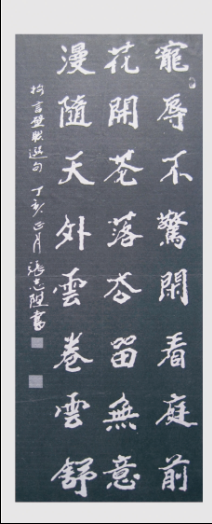 寵辱不驚閒看庭前
花開花落去留無意
漫隨天外雲卷雲舒
摘言聯選句 丁亥正月 張志陞書